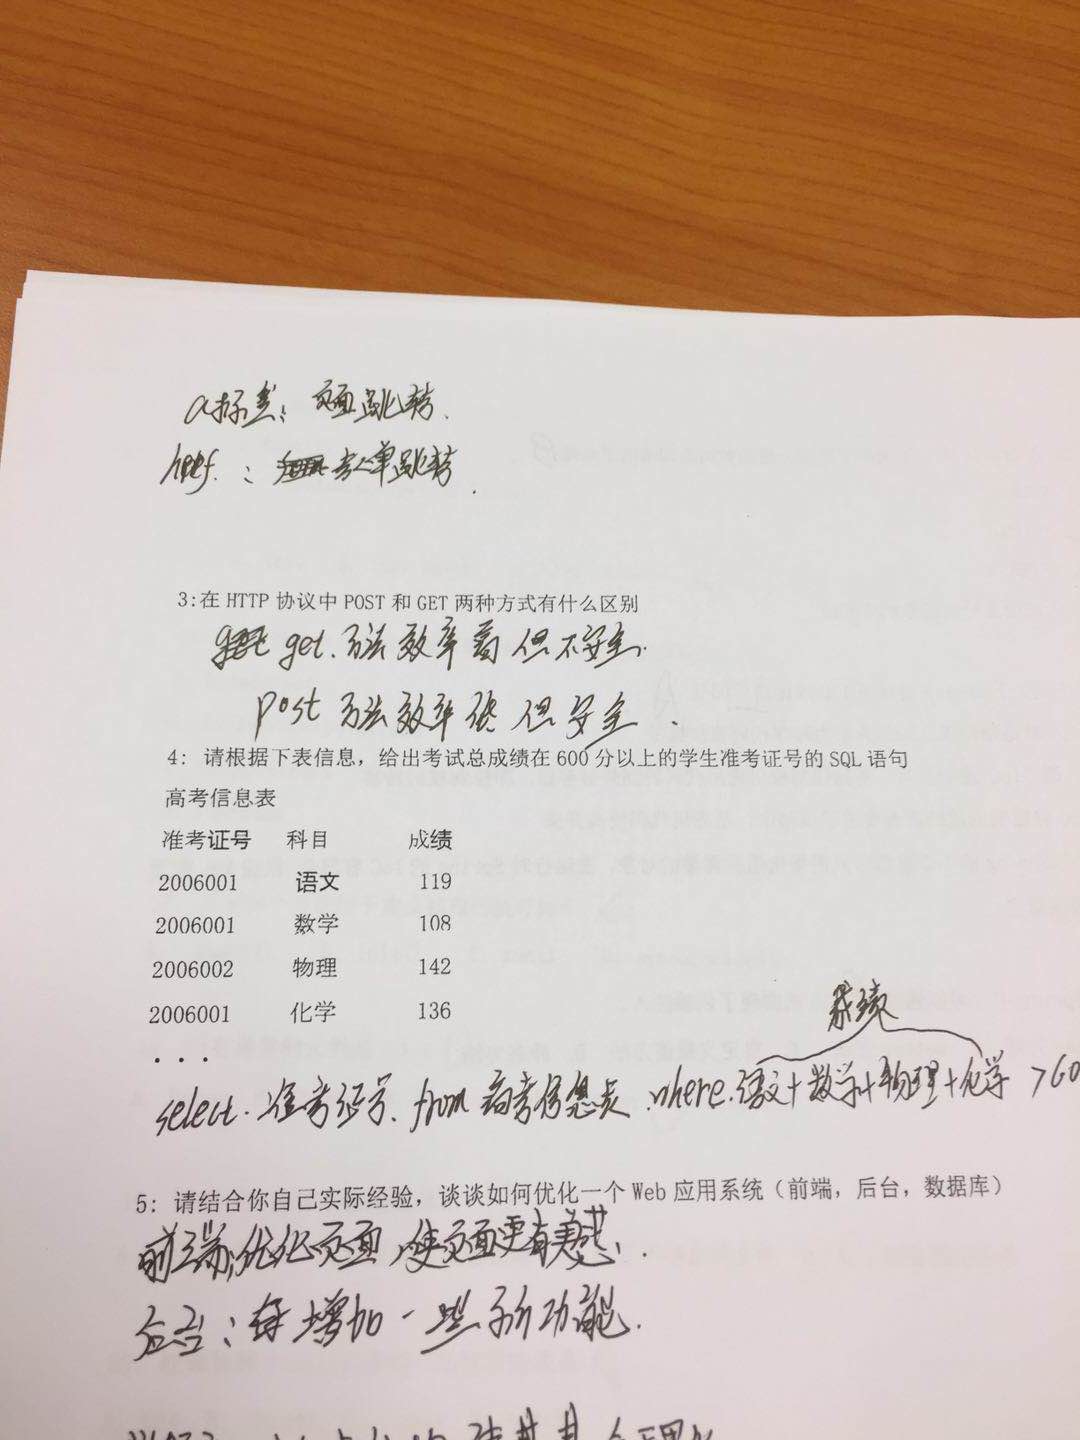 a标签: 页面跳转.
href. : 表单跳转.
3:在 HTTP 协议中 POST 和 GET 两种方式有什么区别
get.方法效率高但不安全.
post 方法效率低 但安全.
4: 请根据下表信息，给出考试总成绩在 600 分以上的学生准考证号的 SQL 语句
高考信息表
准考证号 科目 成绩
2006001 语文 119
2006001 数学 108
2006002 物理 142
2006001 化学 136
...
成绩
select.准考证号.from 高考信息表.where.语文+数学+物理+化学 >60
5: 请结合你自己实际经验，谈谈如何优化一个 Web 应用系统（前端，后台，数据库）
前端:优化页面,使页面更有美感.
后台:在增加一些新功能.